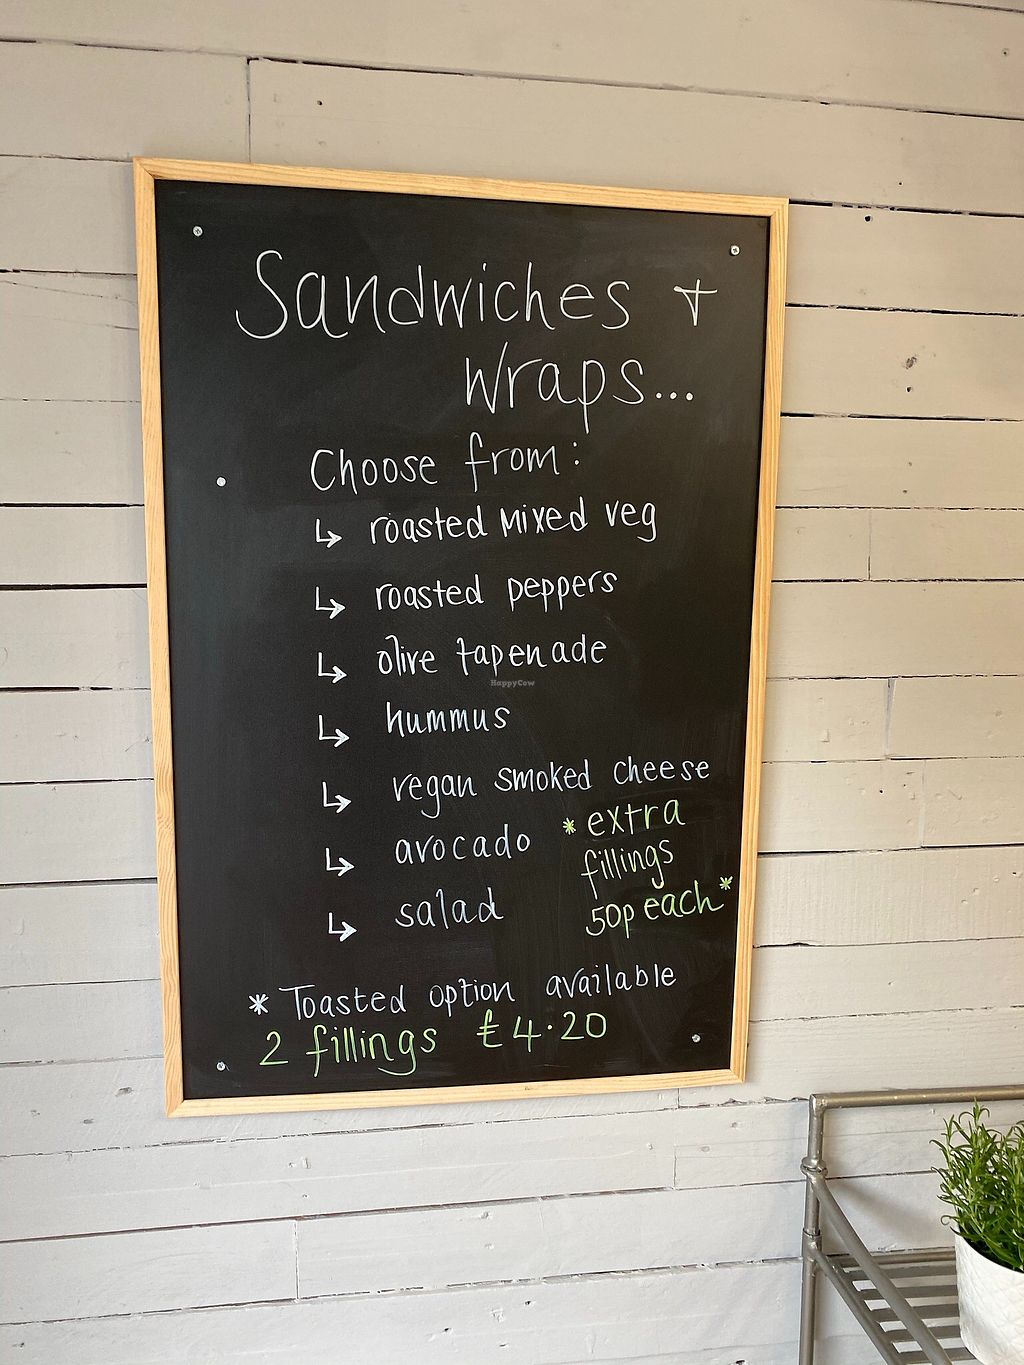 Sandwiches +
Wraps...
Choose from:
↳ roasted mixed veg
↳ roasted peppers
↳ olive tapenade
HappyCow
↳ hummus
↳ vegan smoked cheese
↳ avocado
↳ salad
* extra
fillings
50p each*
* Toasted option available
2 fillings £4.20